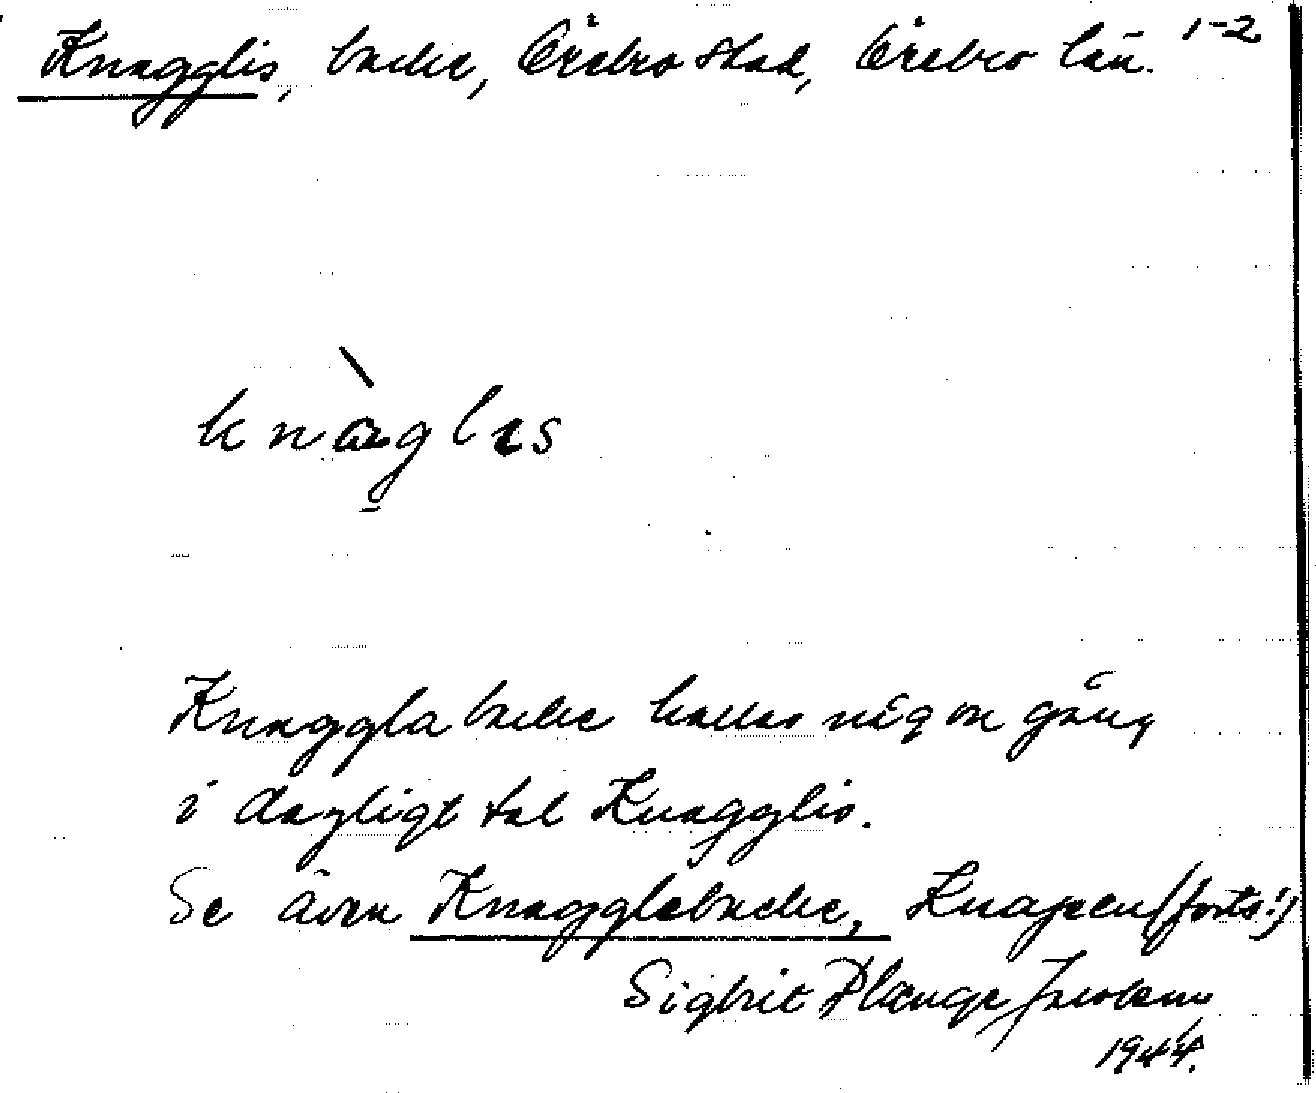 Knagglis, backe, Örebro stad, Örebro län. 1-2
knàglis
Knaggla backe kallas någon gång
i dagligt tal Knagglis.
Se även Knagglabacke, Knapen (forts!)
Sigbrit Plænge Jacobson
1944.